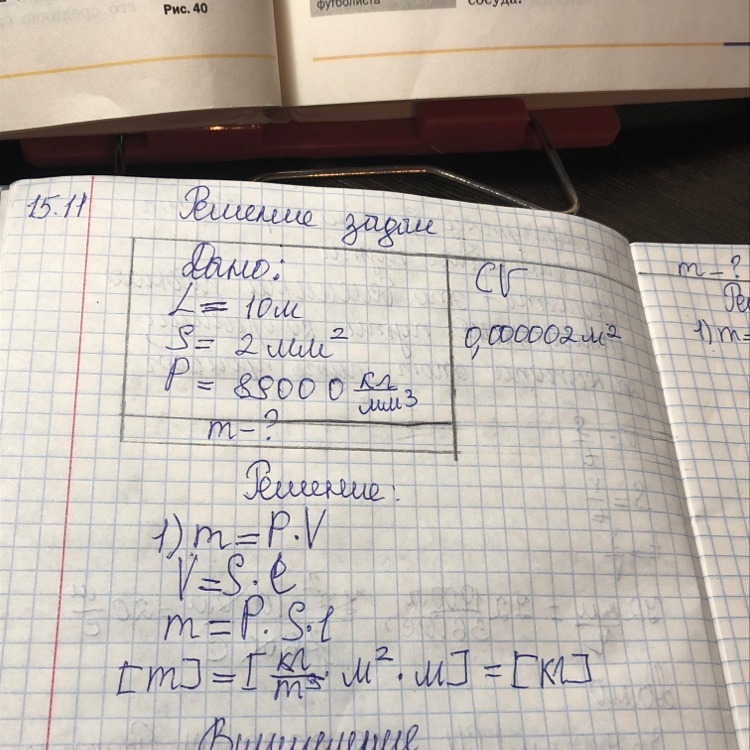 Рис. 40
футболиста
сосуда.
15.11
Решение задач
Дано:
L = 10м
S = 2 мм²
P = 89000 кг/мм³
m – ?
СИ
0,000002 м²
Решение:
1) m = P · V
V = S · l
m = P · S · l
[m] = [кг/m³ · м² · м] = [кг]
m – ?
1) m =